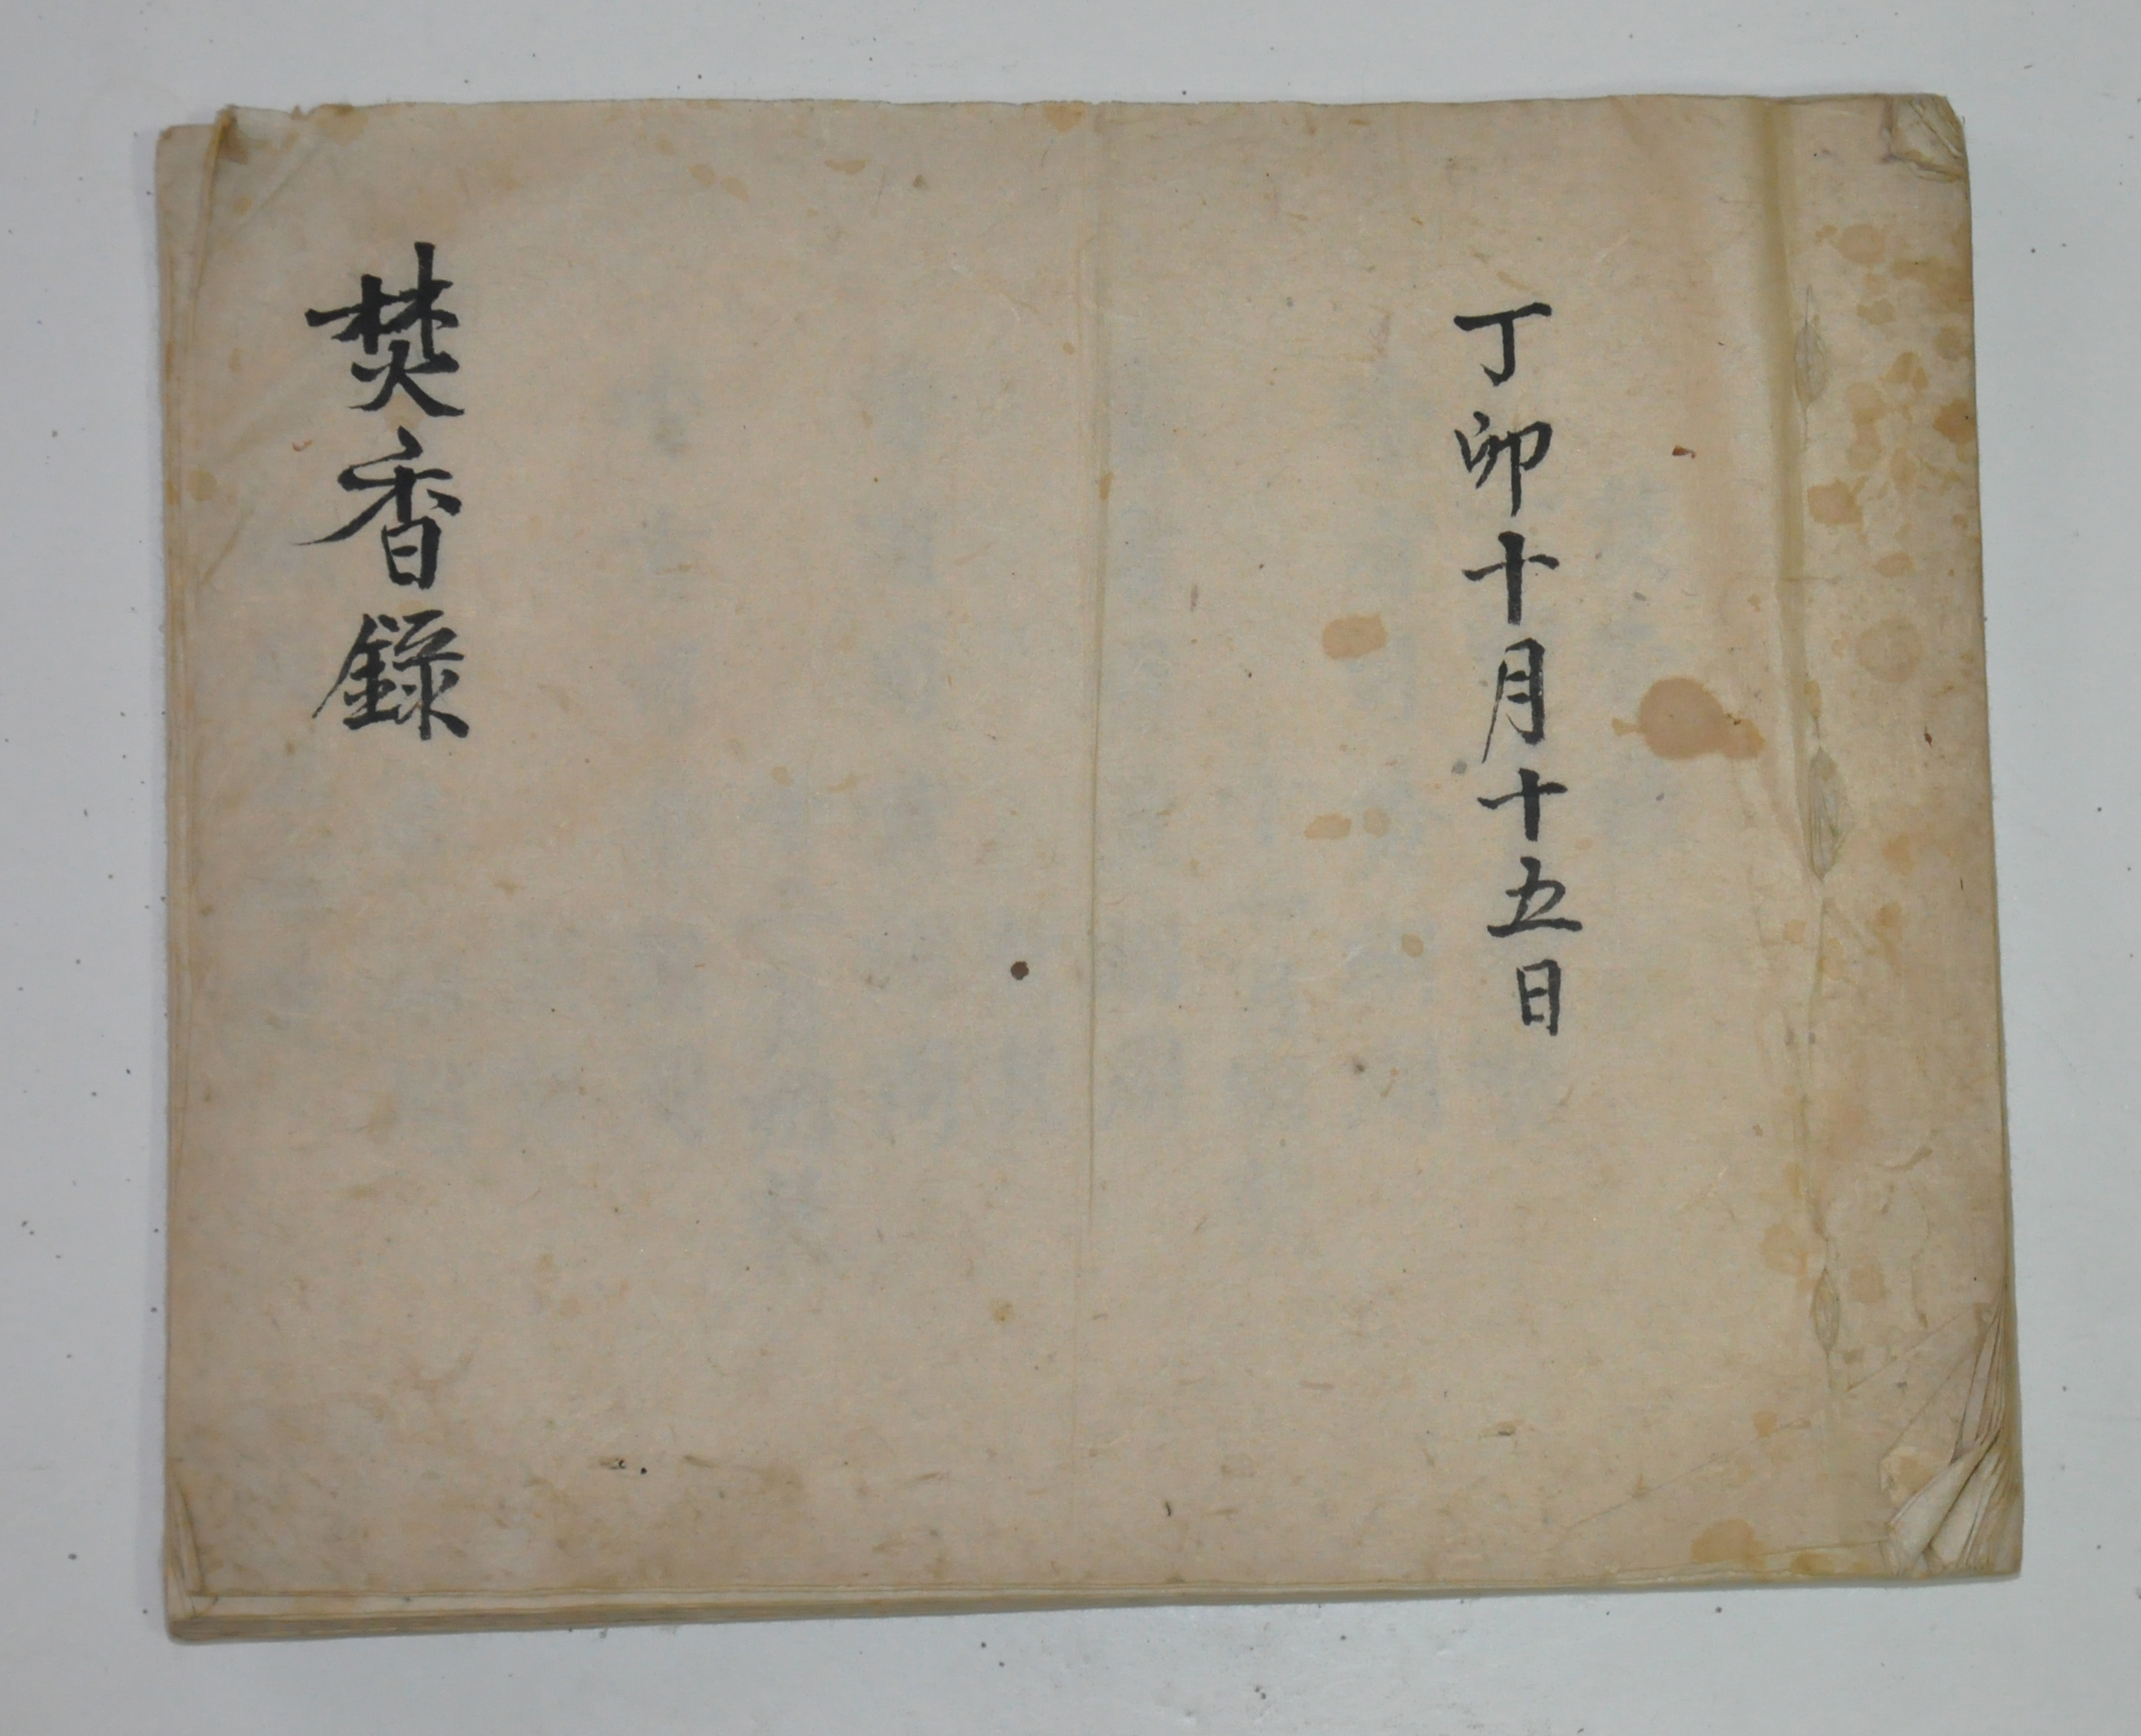 丁卯十月十五日
焚香錄